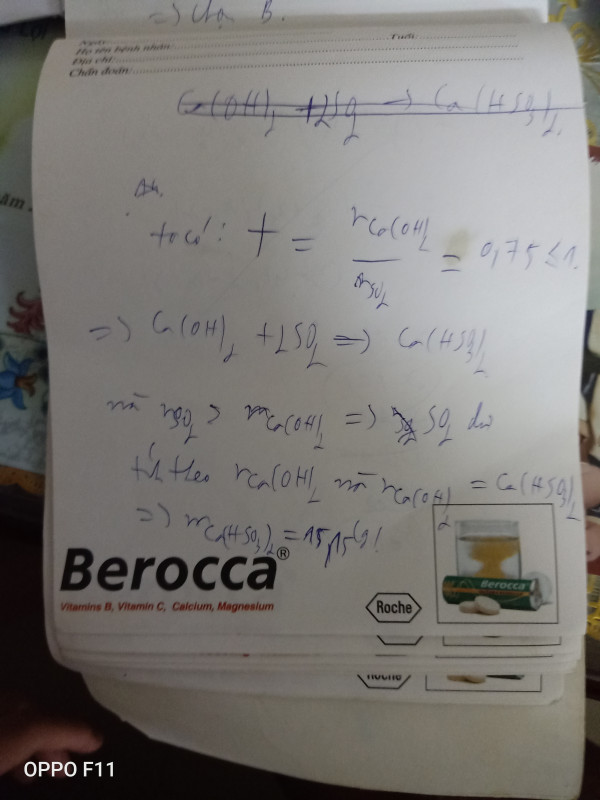 => Chọn B.
Ngày: Tuổi:
Họ tên bệnh nhân:
Địa chỉ:
Chẩn đoán:
Ca(OH)2 + 2SO2 -> Ca(HSO3)2
ta có: T = nCa(OH)2 / nSO2 = 0,75 ≤ 1.
=> Ca(OH)2 + 2SO2 => Ca(HSO3)2
mà nSO2 > nCa(OH)2 => SO2 dư
tính theo nCa(OH)2 mà nCa(OH)2 = Ca(HSO3)2
=> mCa(HSO3)2 = 15,15(g)
Berocca®
Vitamins B, Vitamin C, Calcium, Magnesium
Roche
Berocca
Roche
OPPO F11